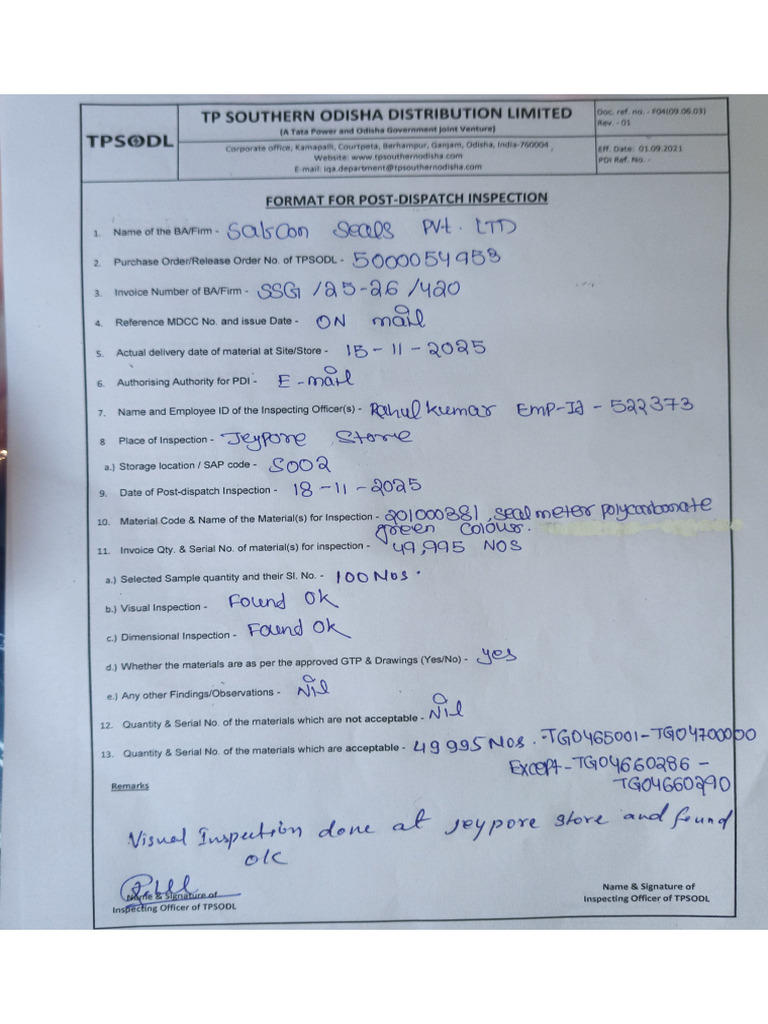 TPSODL
TP SOUTHERN ODISHA DISTRIBUTION LIMITED
(A Tata Power and Odisha Government Joint Venture)
Corporate office, Kamapalli, Courtpeta, Berhampur, Ganjam, Odisha, India-760004
Website: www.tpsouthernodisha.com
E-mail: iqa.department@tpsouthernodisha.com
Doc. ref. no. - F04(09.06.03)
Rev. - 01
Eff. Date: 01.09.2021
PDI Ref. No. -
FORMAT FOR POST-DISPATCH INSPECTION
1. Name of the BA/Firm - Salcon Seals Pvt. LTD
2. Purchase Order/Release Order No. of TPSODL - 5000054953
3. Invoice Number of BA/Firm - SSG/25-26/420
4. Reference MDCC No. and issue Date - ON mail
5. Actual delivery date of material at Site/Store - 15-11-2025
6. Authorising Authority for PDI - E-mail
7. Name and Employee ID of the Inspecting Officer(s) - Rahul kumar Emp-Id - 522373
8 Place of Inspection - Jeypore Store
a.) Storage location / SAP code - S002
9. Date of Post-dispatch Inspection - 18-11-2025
10. Material Code & Name of the Material(s) for Inspection - 201000381, seal meter polycarbonate
green colour.
11. Invoice Qty. & Serial No. of material(s) for inspection - 49,995 NOS
a.) Selected Sample quantity and their Sl. No. - 100 Nos.
b.) Visual Inspection - Found OK
c.) Dimensional Inspection - Found OK
d.) Whether the materials are as per the approved GTP & Drawings (Yes/No) - yes
e.) Any other Findings/Observations - Nil
12. Quantity & Serial No. of the materials which are not acceptable - Nil
13. Quantity & Serial No. of the materials which are acceptable - 49995 Nos. -TG0465001-TG04700000
Except-TG04660286-
TG04660290
Remarks
Visual Inspection done at Jeypore store and found
OK
Name & Signature of
Inspecting Officer of TPSODL
Name & Signature of
Inspecting Officer of TPSODL